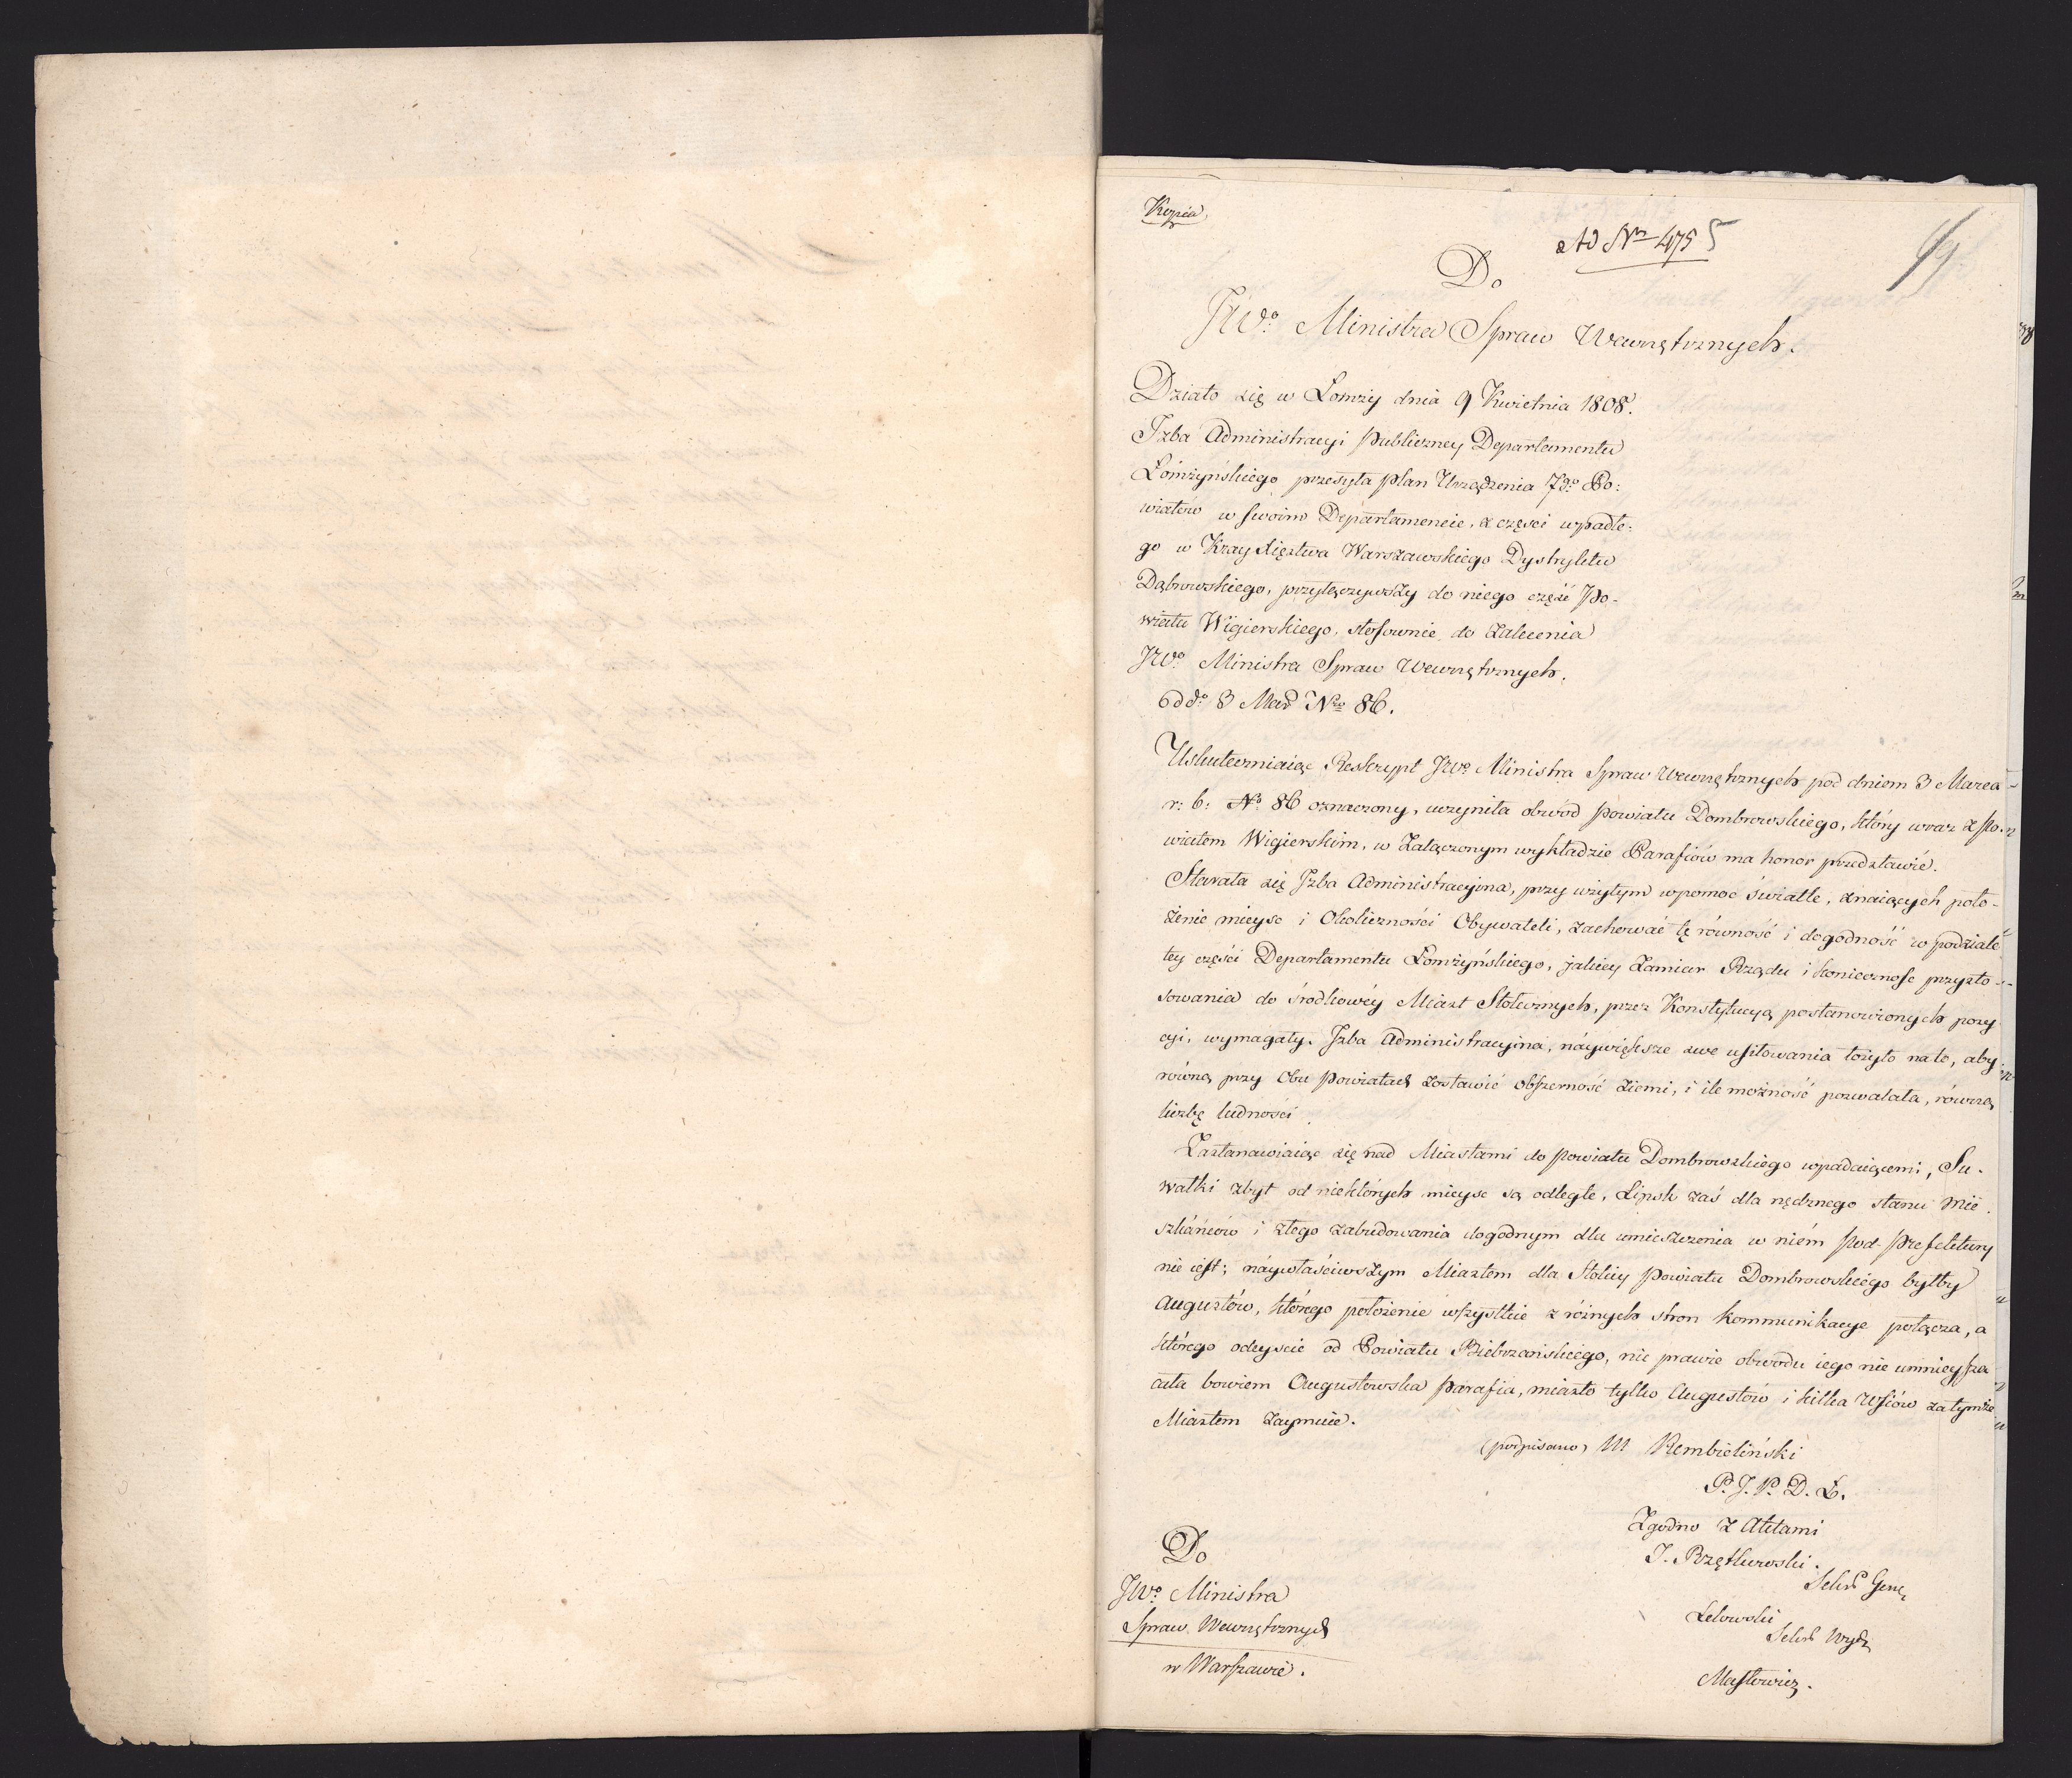 Kopia
Ad Nro 4755
Do
JWo. Ministra Spraw Wewnętrznych.
Działo się w Łomży dnia 9 Kwietnia 1808.
Izba Administracyi Publiczney Departamentu
Łomżyńskiego przesyła plan Urządzenia 7go. Po:
wiatów w swoim Departamencie, z części wpadłe:
go w Kray Xięztwa Warszawskiego Dystryktu
Dąbrowskiego, przyłączywszy do niego część Po-
wiatu Wigierskiego, stosownie do Zalecenia
JWo. Ministra Spraw Wewnętrznych.
ddo. 3 Mar. Nro 86.
Uskuteczniaiąc Reskrypt JWo. Ministra Spraw Wewnętrznych pod dniem 3 Marca
r: b: No. 86 oznaczony, uczyniła obwód Powiatu Dombrowskiego, który wraz z Po-
wiatem Wigierskim, w Załączonym wykładzie Parafiów ma honor przedstawić.
Starała się Izba Administracyina, przy użytym wpomoc świetle, znaiących poło-
żenie mieysc i Okoliczności Obywateli, zachować tę równość i dogodność w podziale
tey części Departamentu Łomżyńskiego, jakiey Zamiar Rządu i konieczność przysto-
sowania do środkowéy Miast Stołecznych, przez Konstytucyą postanowionych pozy
cyi, wymagały. Izba Administracyina, naywiększe swe usiłowania łożyło na to, aby
równą przy Obu Powiatach zostawić obszerność ziemi, i ile możność pozwalała, równą
liczbę ludności.
Zastanawiaiąc się nad Miastami do Powiatu Dombrowskiego wpadaiącemi, Su-
wałki zbyt od niektórych mieysc są odległe, Lipsk zaś dla nędznego stanu Mie
szkańców i złego zabudowania dogodnym dla umieszczenia w niém Pod-Prefektury
nie iest; naywłaściwszym Miastem dla Stolicy Powiatu Dombrowskiégo byłby
Augustów, którego położenie wszystkie z różnych stron kommunikacye połącza, a
którego odeyscie od Powiatu Biebrzańskiego, nic prawie obwodu iego nie umnieysza
cała bowiem Augustowska Parafia, miasto tylko Augustów i kilka Wsiów za tymże
Miastem zaymuie.
(podpisano) M Rembieliński
P. J. P. D. Ł.
Zgodno z Aktami
J. Rzętkowski.
Sekr. Gene
Lelowski
Sekr Wydz
Masłowicz.
Do
JWo. Ministra
Spraw Wewnętrznych
w Warszawie.